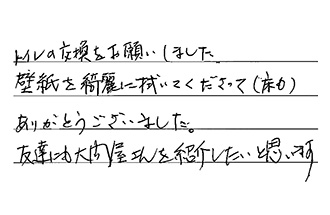 トイレの交換をお願いしました。
壁紙を綺麗に拭いてくださって(床も)
ありがとうございました。
友達にも大向屋さんを紹介したいと思います